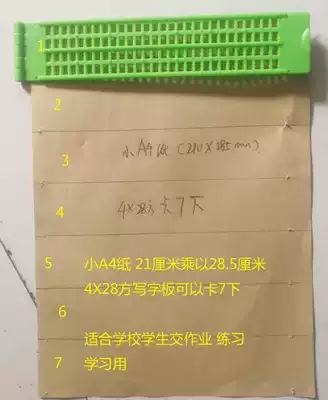 1
2
3
小A4纸(210×285mm)
4
4×28方 卡7下
5
小A4纸 21厘米乘以28.5厘米
4X28方写字板可以卡7下
6
适合学校学生交作业 练习
7
学习用